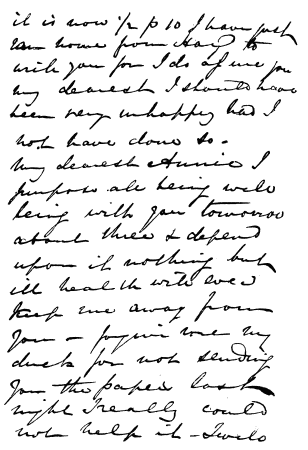 it is now 1/2 p 10 I have just
ran home from Hary to
with you for I do a   you
my dearest I should have
been very unhappy had I
not have done so.
My dearest Annie I
purpose all being well
being with you tomorrow
about three & depend
upon it nothing but
ill health will ever
keep me away from
you - forgive me my
duck for not sending
you the paper last
night I really could
not help it - I will